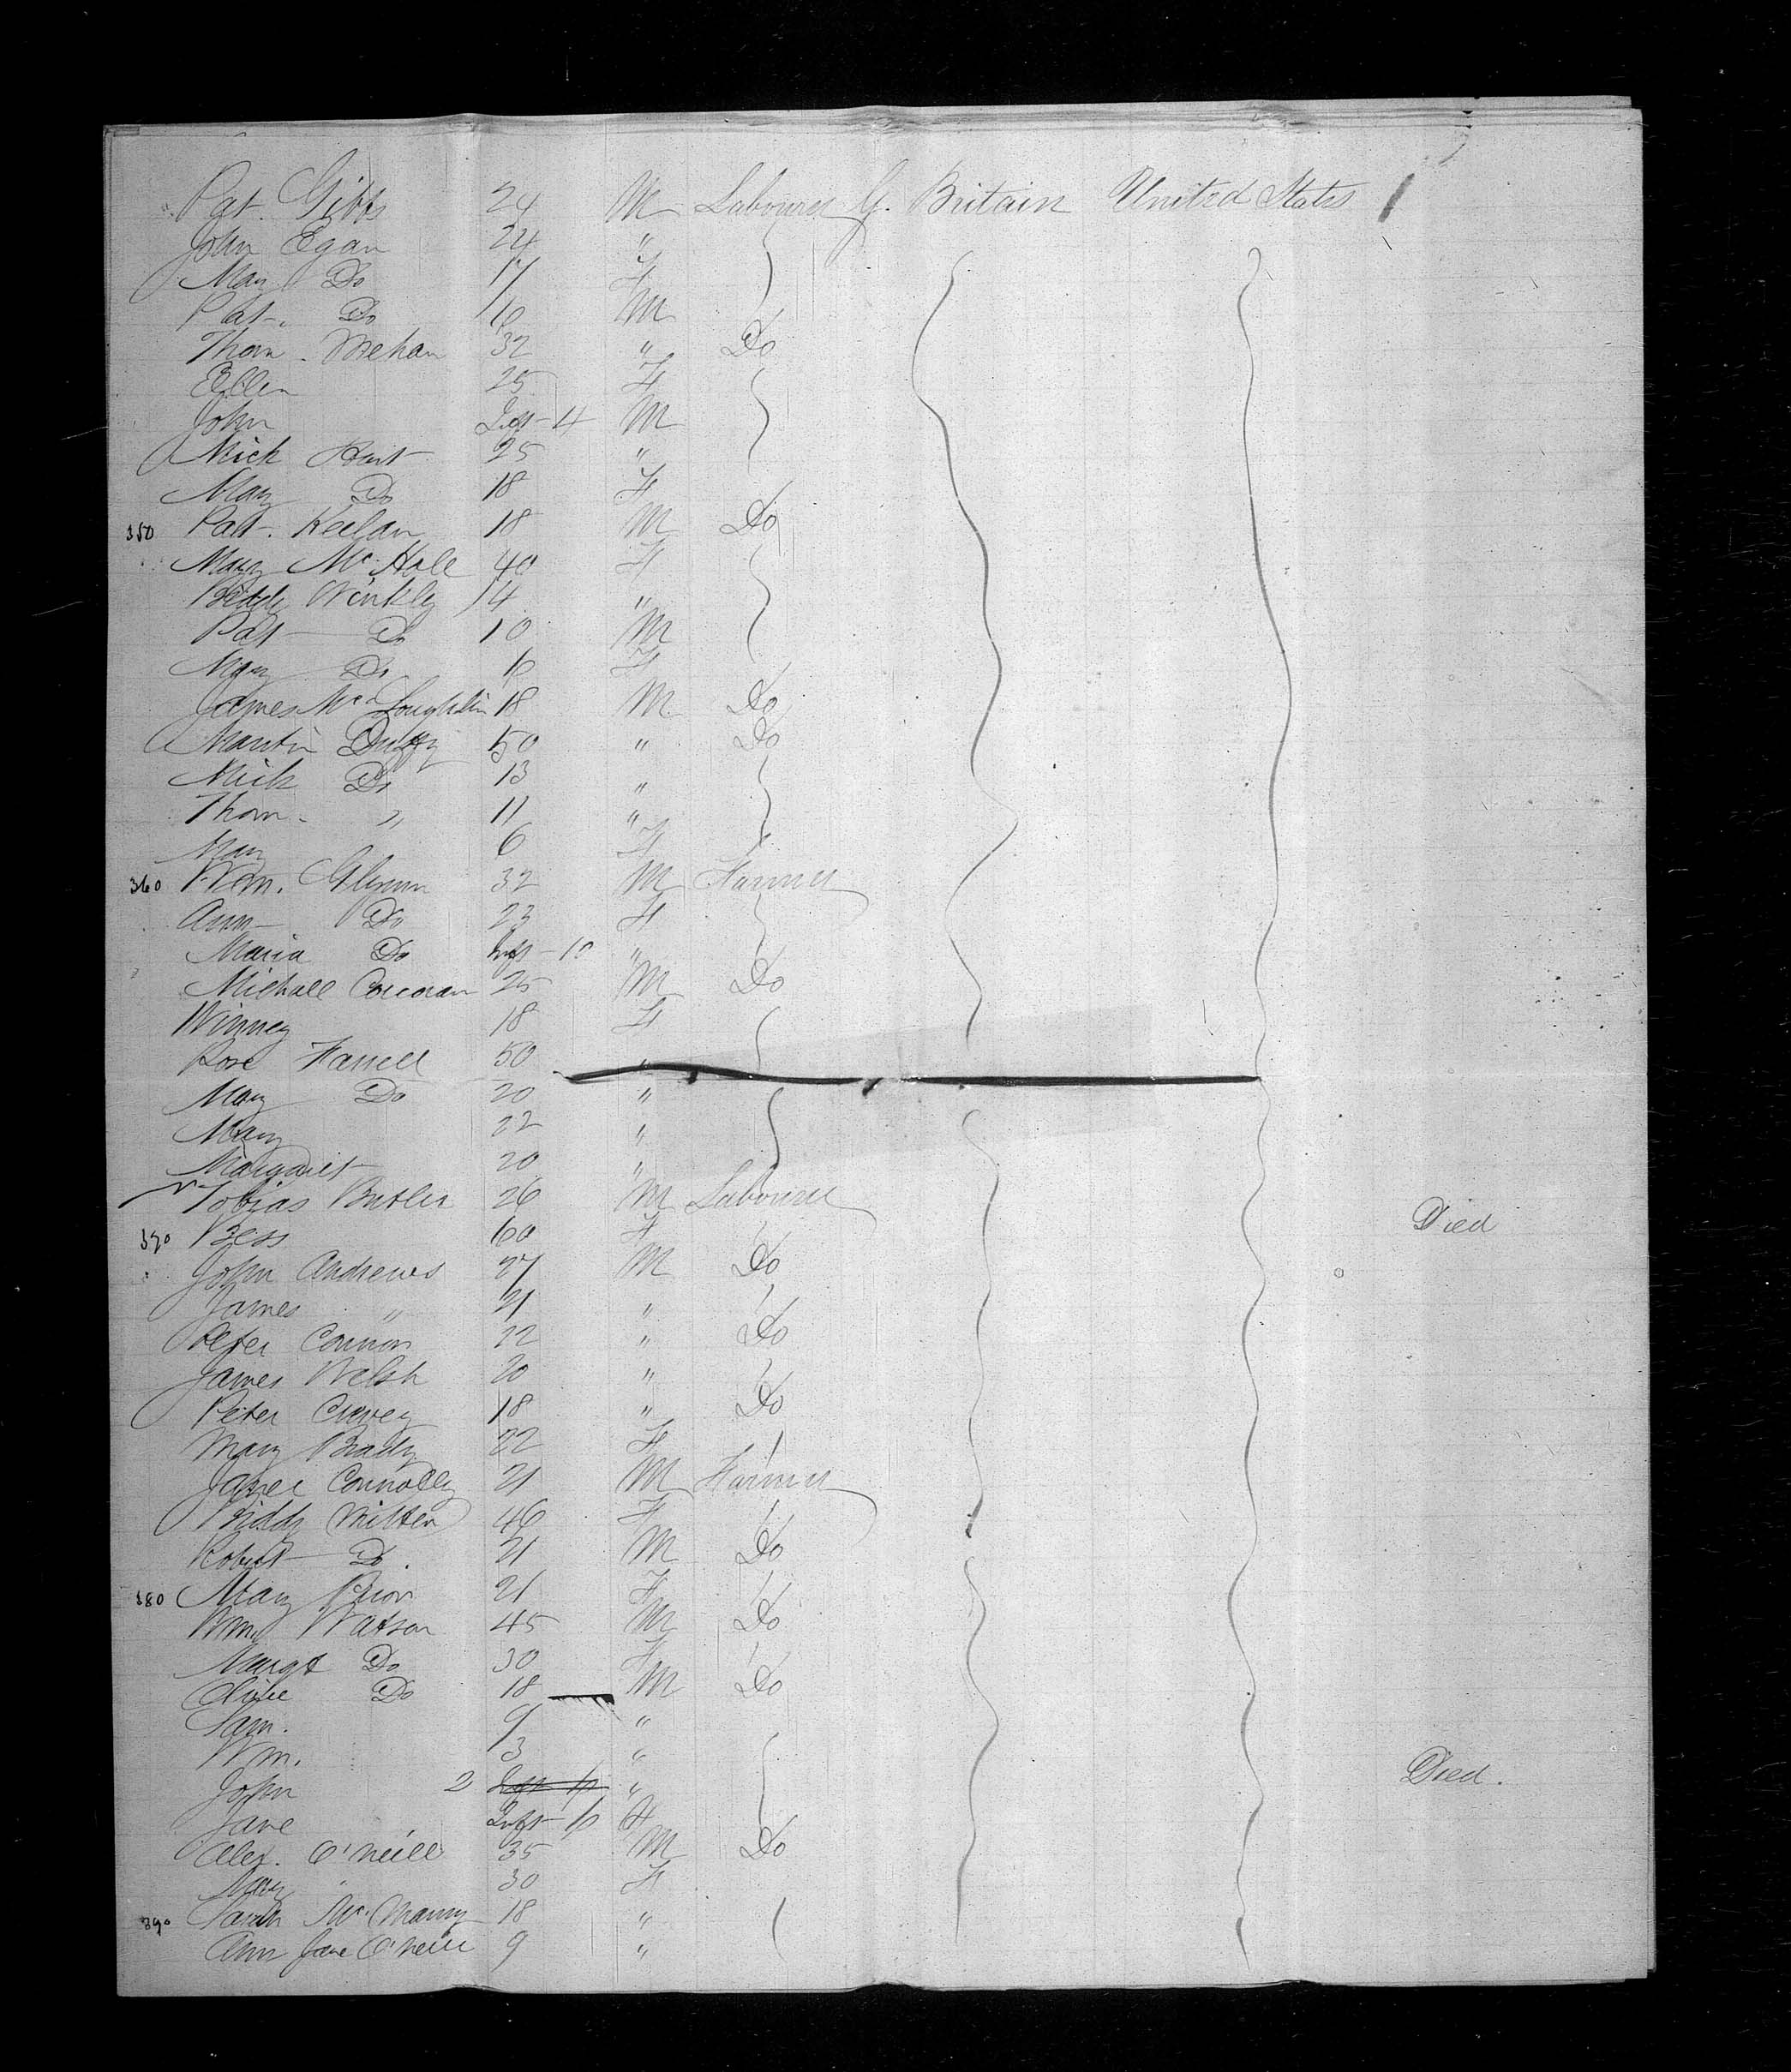 Pat. Gibbs 24 M Labourer G. Britain United States
John Egan 24 "
Mary Do 17 F
Pat. Do 16 M
Thom. Mehan 32 " Do
Ellen 25 F
John Inft - 4 M
Mick Hart 25 "
Mary Do 18 F
350 Pat. Keelan 18 M Do
Mary McHale 40 F
Biddy Winkly 14 "
Pat Do 10 M
Mary Do F
James McLoughlin 18 M Do
Martin Duffy 50 " Do
Mick Do 13 "
Thom. " 11 "
Mary 6 F
360 Wm. Glynn 32 M Farmer
Ann Do 23 F
Maria Do Inft - 10 "
Michall Corcoran 25 M Do
Winney 18 F
Rose Farrell 50 "
Mary Do 20 "
Mary 22 "
Margaret 20 "
Tobias Butler 26 M Labourer
370 Bess 60 F Died
John Andrews 27 M Do
James " 21 "
Peter Connor 22 " Do
James Welsh 20 "
Peter 18 " Do
Mary Brady 22 F
Connolly 21 M Farmer
Biddy Milten 46 F
Robert Do. 21 M Do
380 Mary Prior 21 F
Wm. Watson 45 M Do
Margt Do 30 F
Do 18 M Do
Sam. 9 "
Wm. 3 "
John 2 " Died.
Jane Inft F
Alex. O'Neill 35 M Do
Mary 30 F
390 Sarah Mc 18 "
Ann Jane O'Neill 9 "